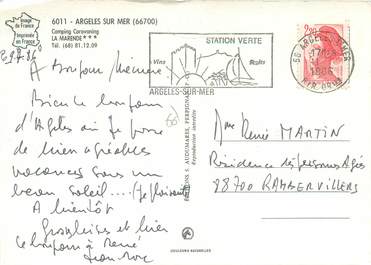 Image de France
Imprimée en France
6011 - ARGELES SUR MER (66700)
Camping Caravaning
LA MARENDE ***
Tél. (68) 81.12.09
STATION VERTE
Vins
ARGELES-SUR-MER
66 ARGELES S/MER
1986
PYR ORIEN
2,20
A Bonjour Mémère
Bien le bonjour
d'Argeles où je passe
de bien agréables
vacances sous un
beau soleil.... (Je plaisante)
A bientôt
Grosses bises et bien
le bonjour à René
Jean-Marc
EDITIONS S. AUDUMARES, PERPIGNAN
Reproduction interdite
COULEURS NATURELLES
Mme René MARTIN
Résidence des personnes Agées
88700 RAMBERVILLERS